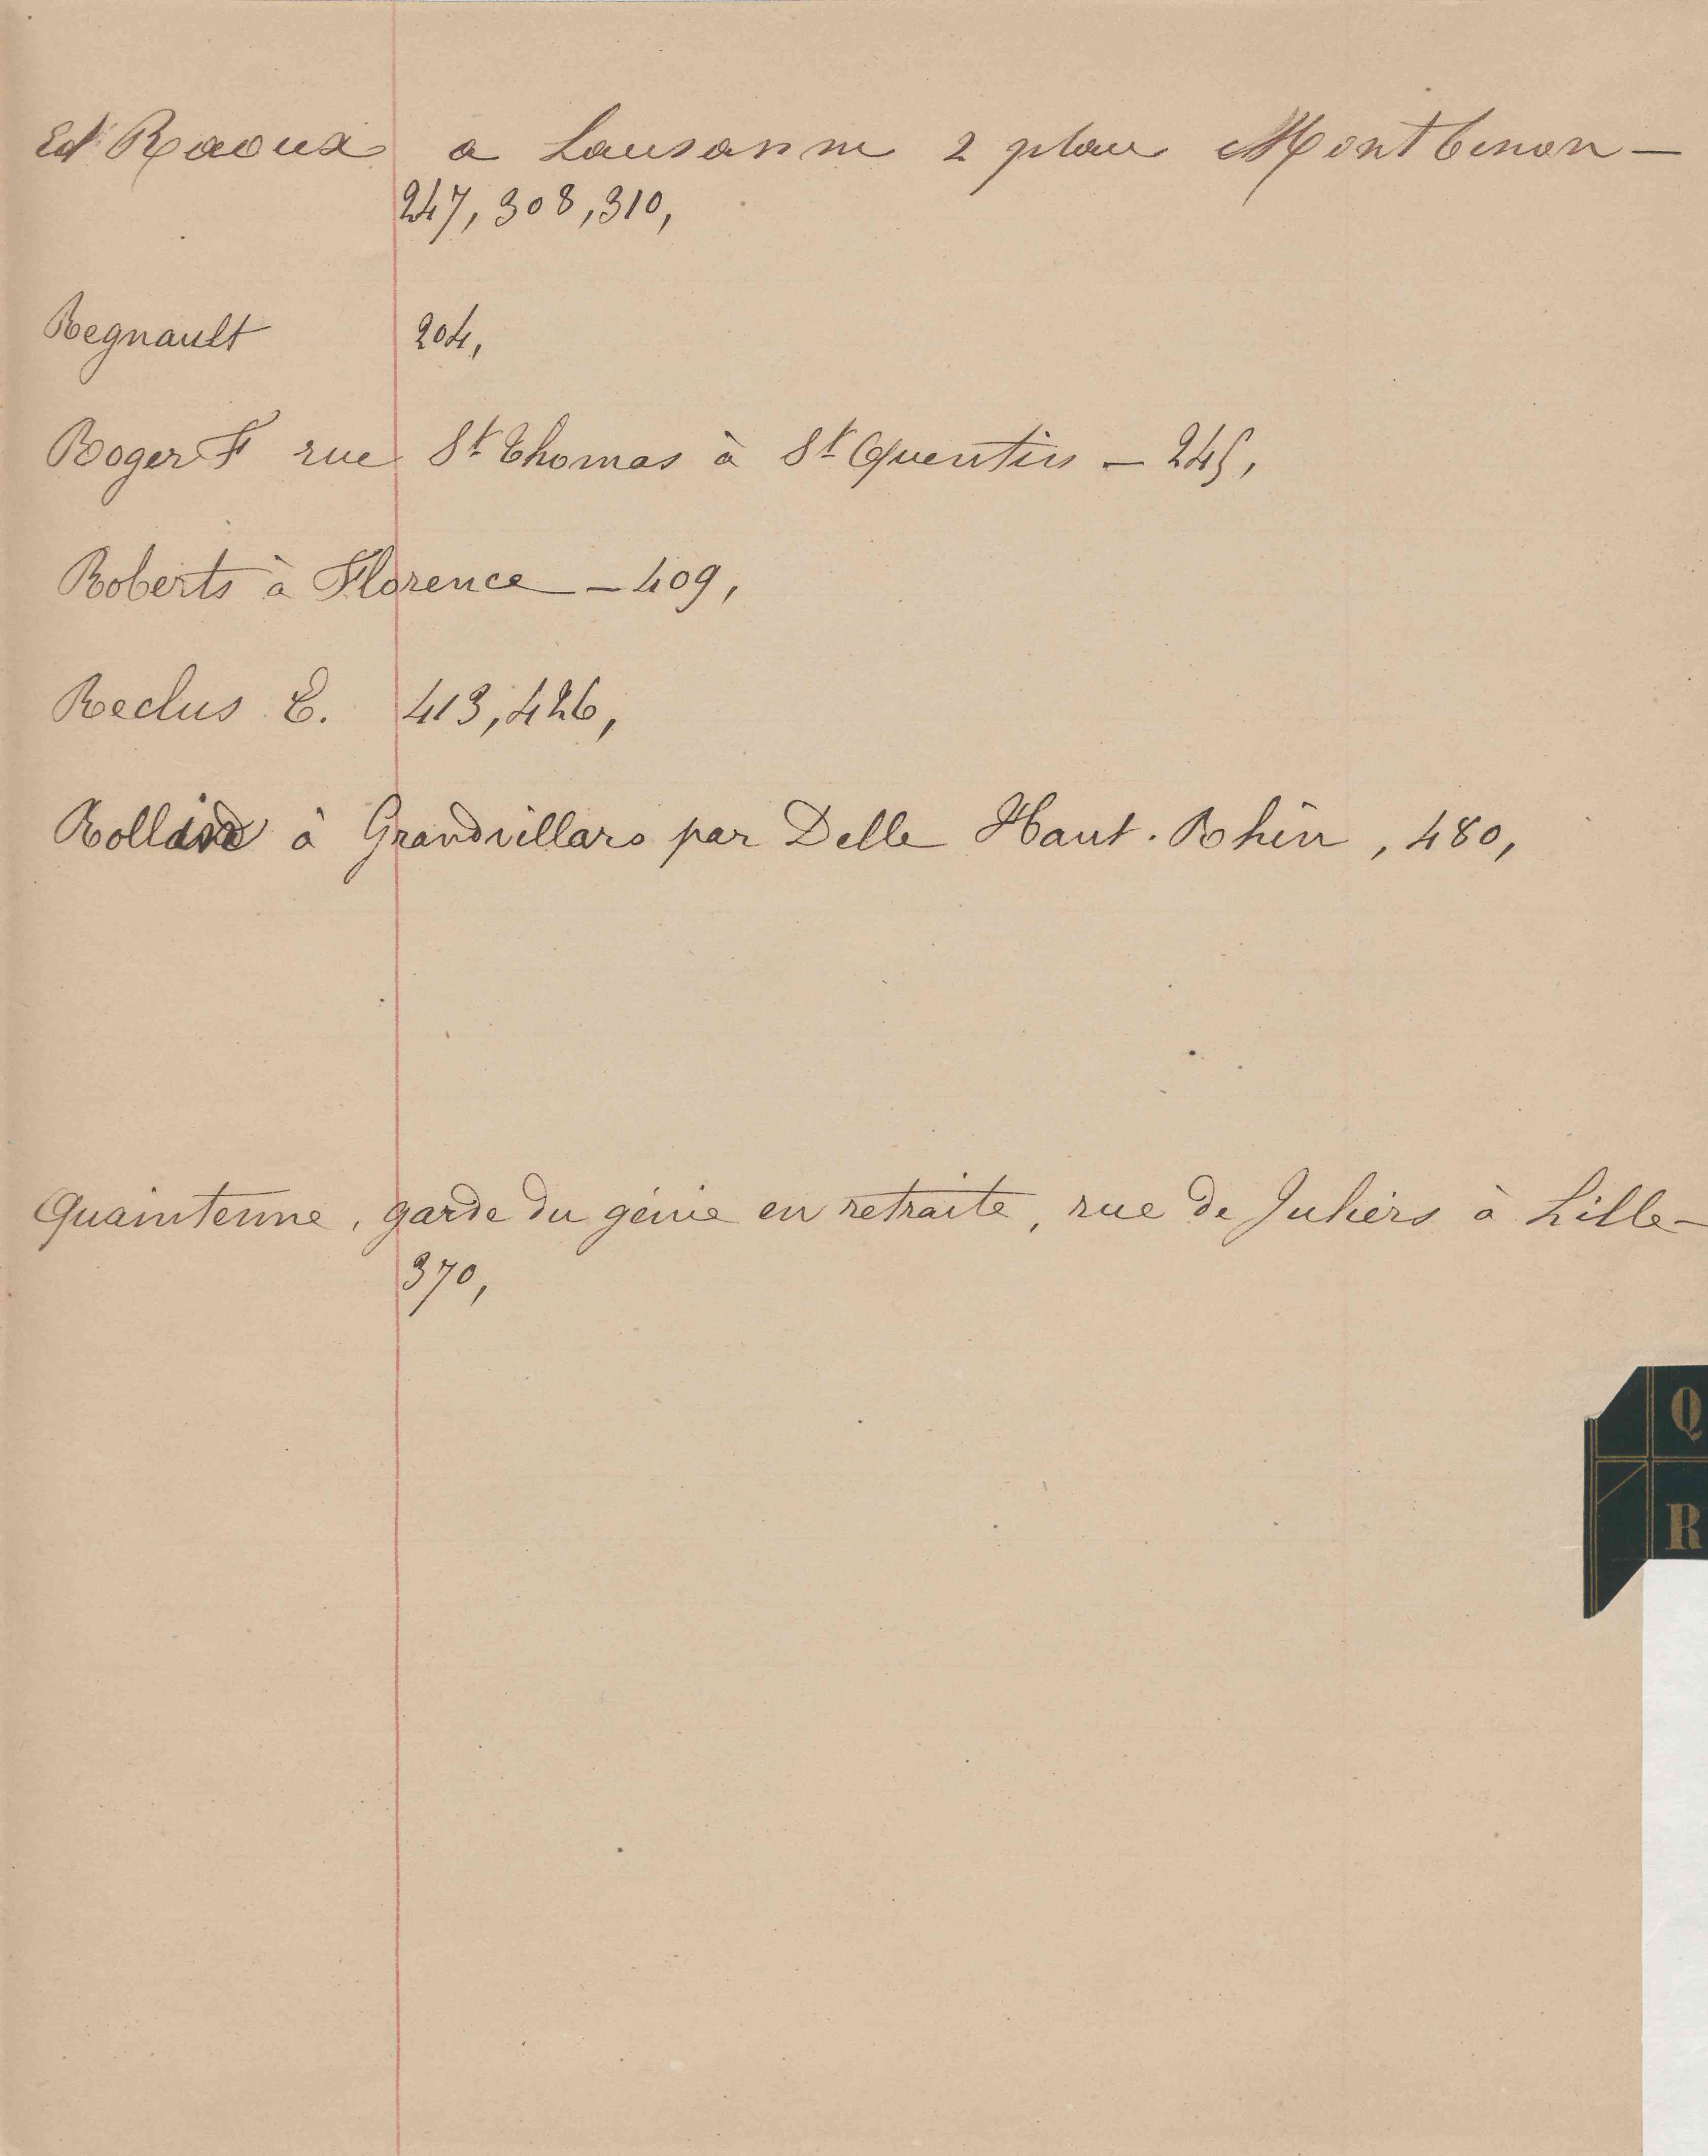 Ed Raoux a Lausanne 2 plan Montbenon —
247, 308, 310,
Regnault 204,
Roger F rue St Thomas à St Quentin — 245,
Roberts à Florence — 409,
Reclus E. 413, 426,
à Grandvillars par Delle Haut. Rhin, 480,
Quaintenne, garde du génie en retraite, rue de Juliers à Lille —
370,
Q
R